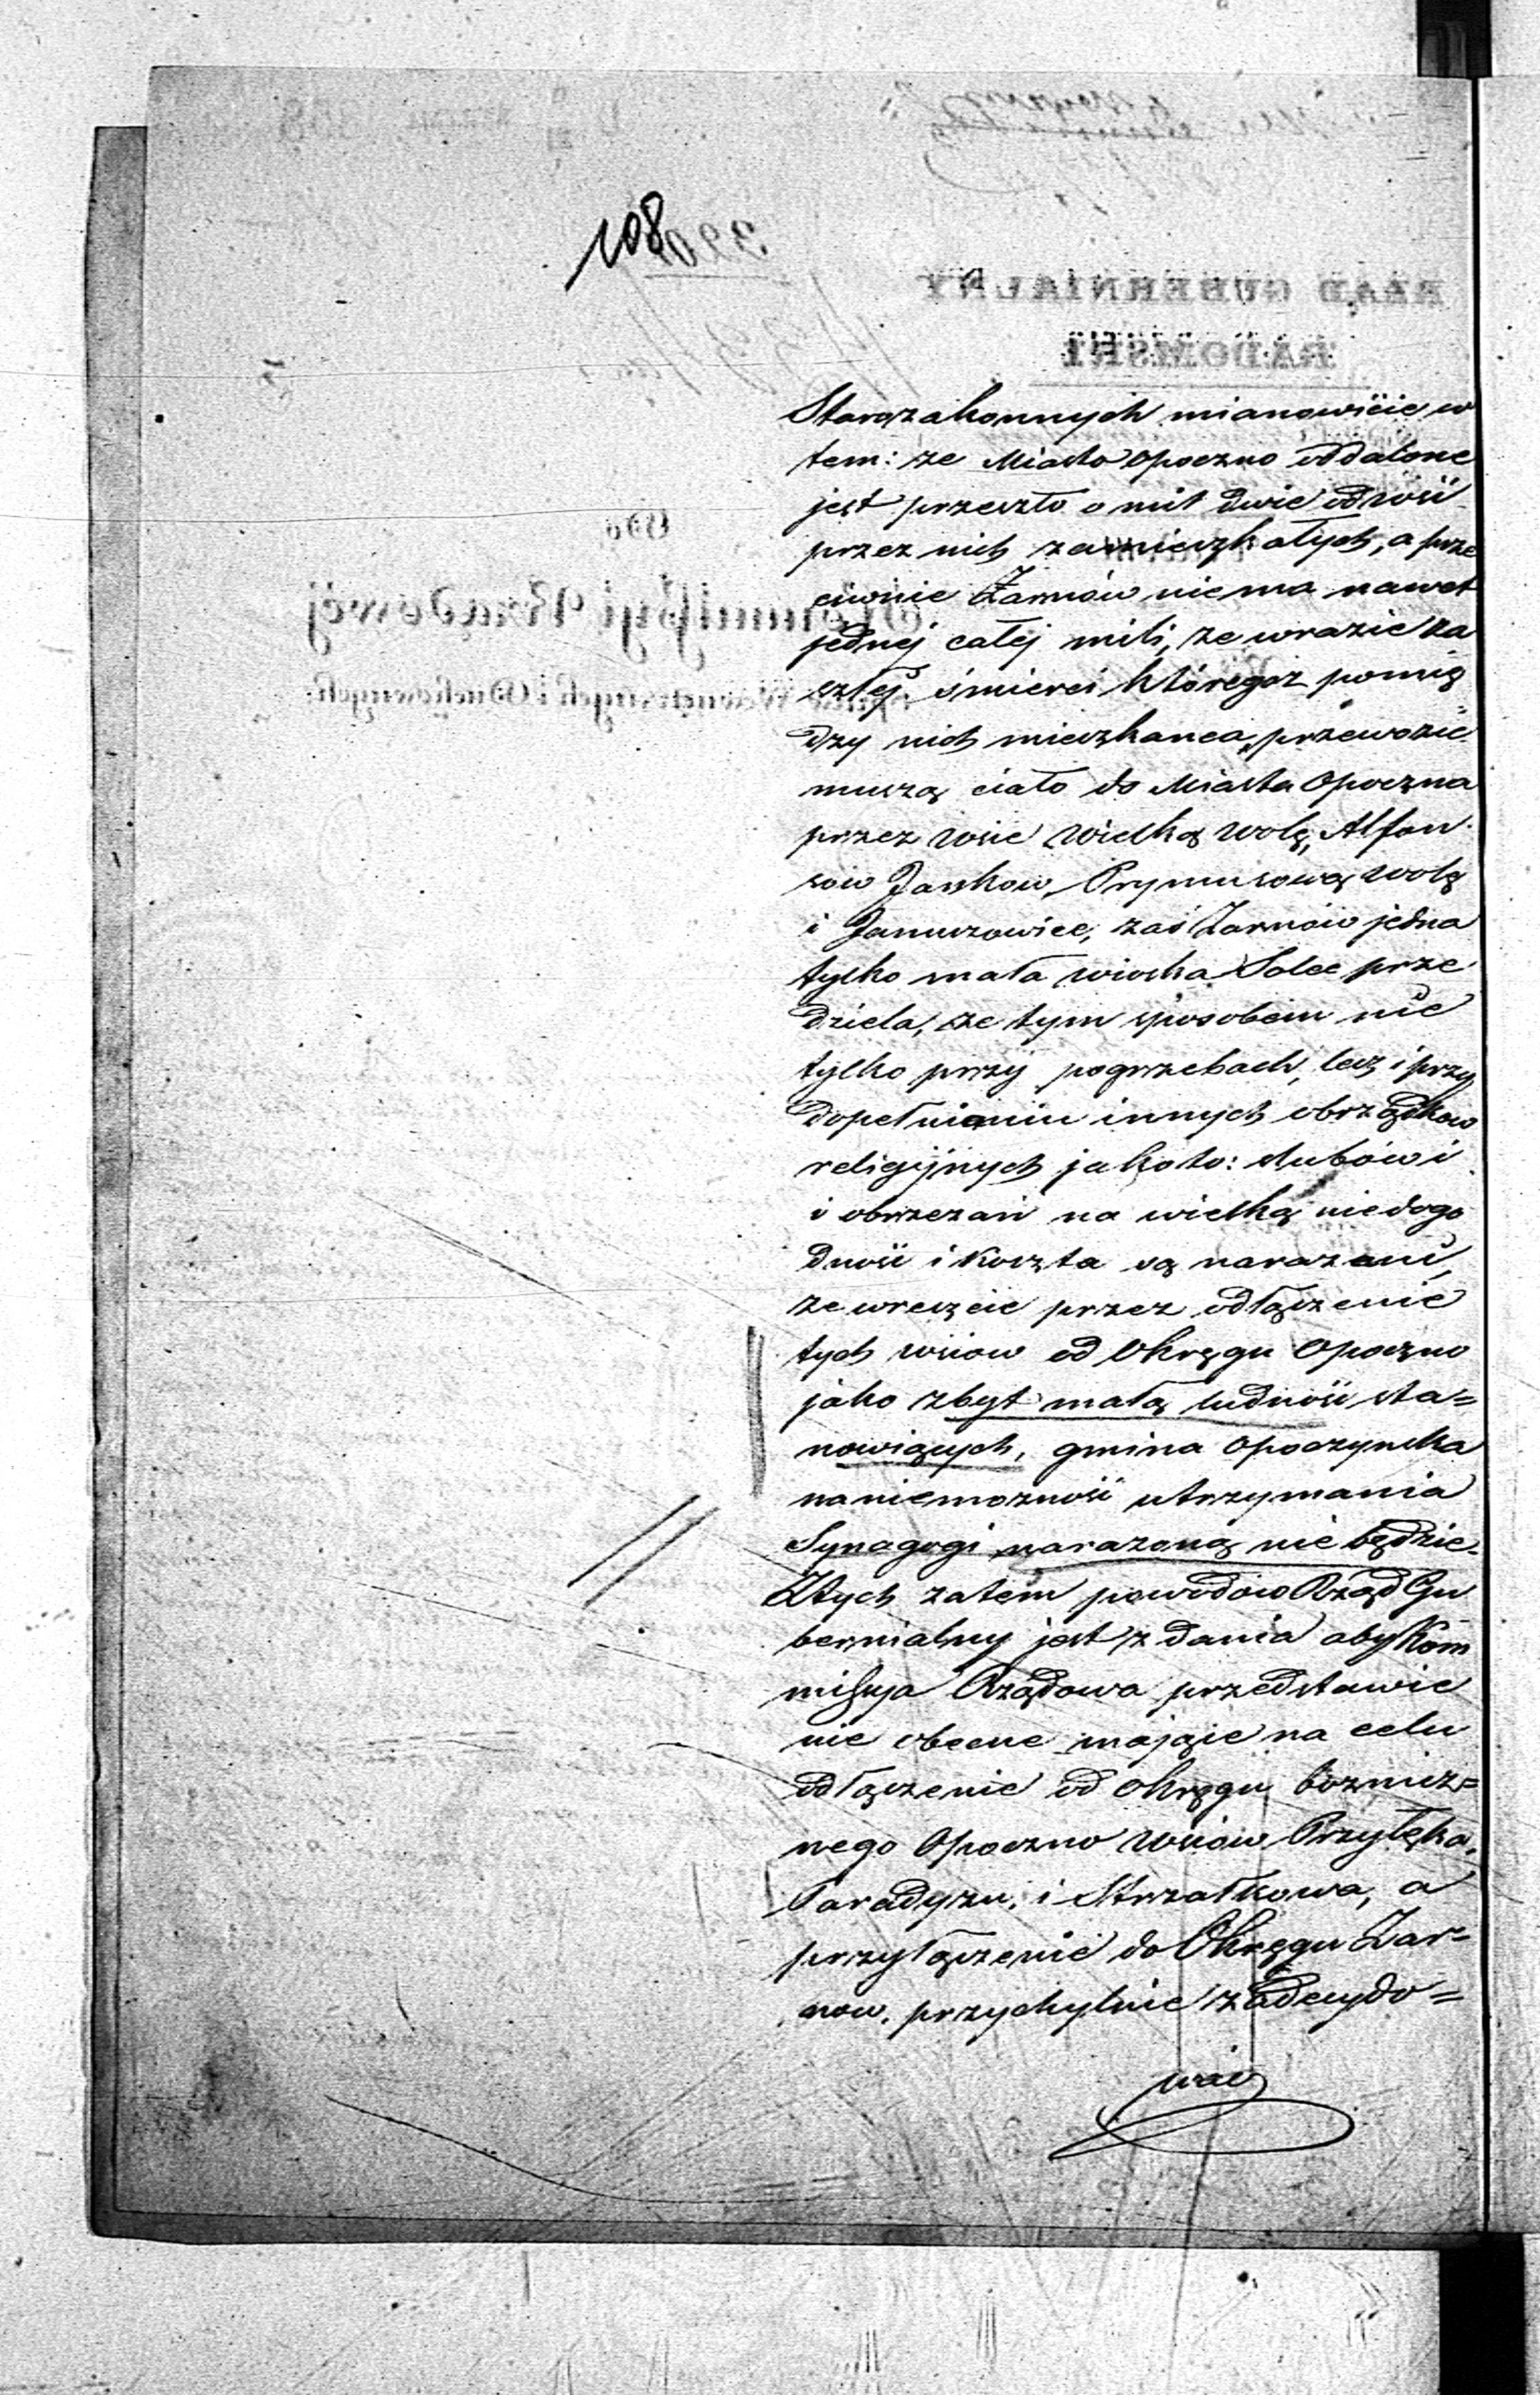 108
Starozakonnych mianowicie w
tem: że Miasto Opoczno oddalone
jest przeszło o mil dwie od wsi
przez nich zamieszkałych, a prze
ciwnie Żarnów niema nawet
jednej całej mili, że w razie za
szłej śmierci któregoż pomię
dzy nich mieszkańca, przewozić
muszą ciało do Miasta Opoczna
przez wsie Wielką Wolę, Alfon
sów Jankow, Prymusową Wolę
i Januszowice, zaś Żarnów jedna
tylko mała wioska Solec prze
dziela, że tym sposobem nie
tylko przy pogrzebach, lecz i przy
dopełnieniu innych obrządkow
religijnych jakoto: slubów i
i obrzezań na wielką niedogo
dność i koszta są narażeni,
że wreszcie przez odłączenie
tych wsiow od Okręgu Opoczno
jako zbyt małą ludność sta=
nowiących, gmina Opoczyńska
na niemożność utrzymania
Synagogi narażoną nie będzie.
Z tych zatem powodów Rząd Gu
bernialny jest zdania aby Kom
missya Rządowa przedstawie
nie obecne mające na celu
odłączenie od Okręgu bożnicz=
nego Opoczno wsiow Przyłęka,
Paradyzu, i Strzałkowa, a
przyłączenie do Okręgu Żar=
now, przychylnie zadecydo=
wać
RZĄD GUBERNIALNY
RADOMSKI
Do
Kommissyi Rządowéj
Spraw Wewnętrznych i Duchownych